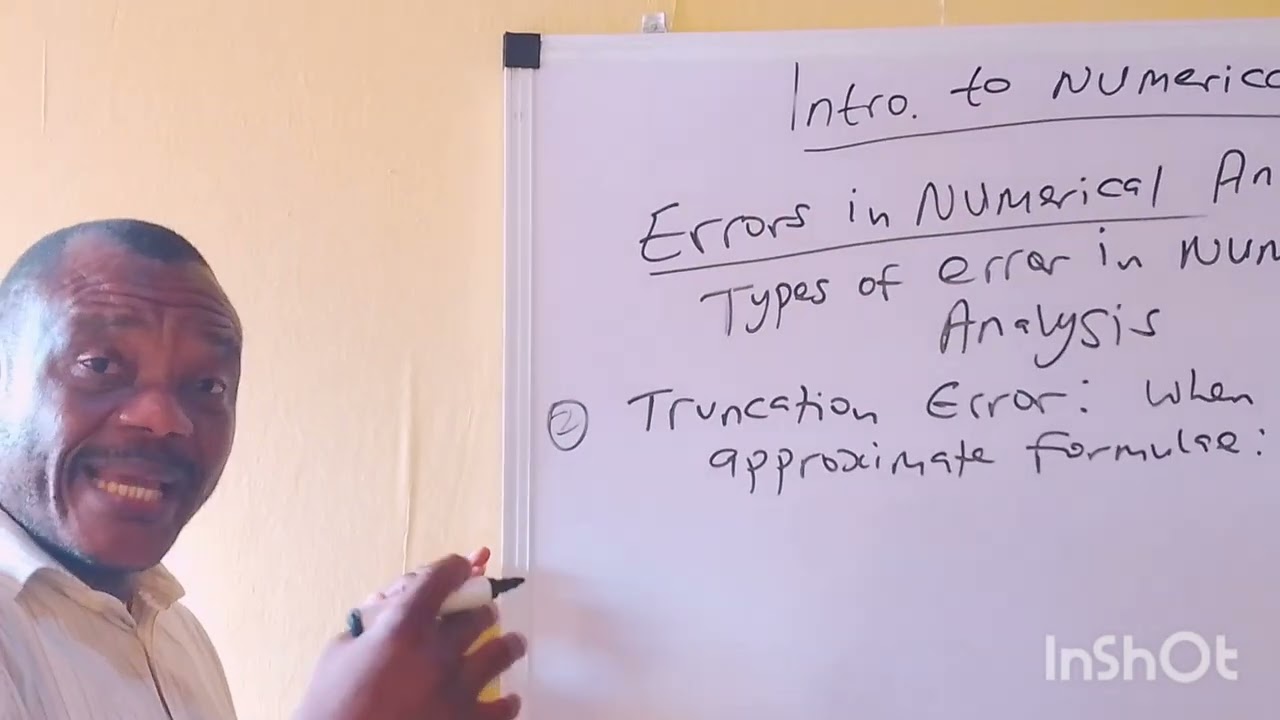 Intro. to Numerica
Errors in Numerical An
Types of error in Num
Analysis
② Truncation Error: when
approximate formulae:
InShOt